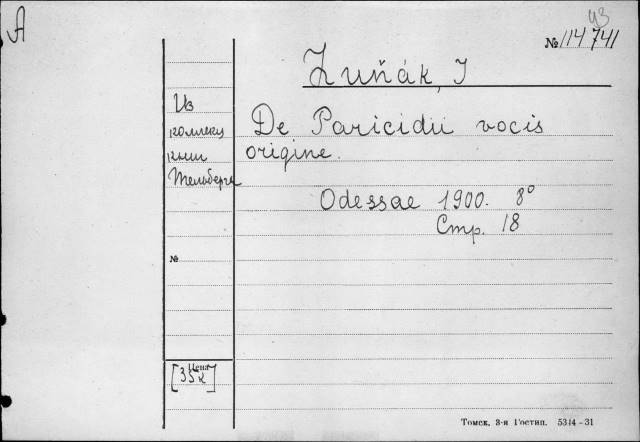 A
43
№ 114741
Luňák, I
Из
коллекц
книг
Тельберга
De Paricidii vocis
origine.
Odessae 1900. 8°
Стр. 18
№
Цена
[35к]
Томск, 3-я Гостип. 5344-31